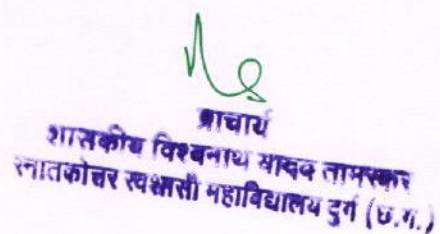 प्राचार्य
शासकीय विश्वनाथ यादव तामस्कर
स्नातकोत्तर स्वशासी महाविद्यालय दुर्ग (छ.ग.)